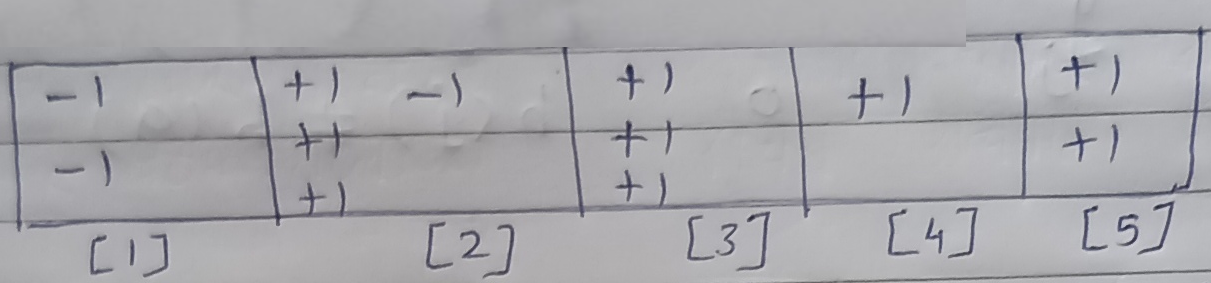 -1 +1 -1 +1 +1 +1
-1 +1 +1 +1
+1 +1
[1] [2] [3] [4] [5]